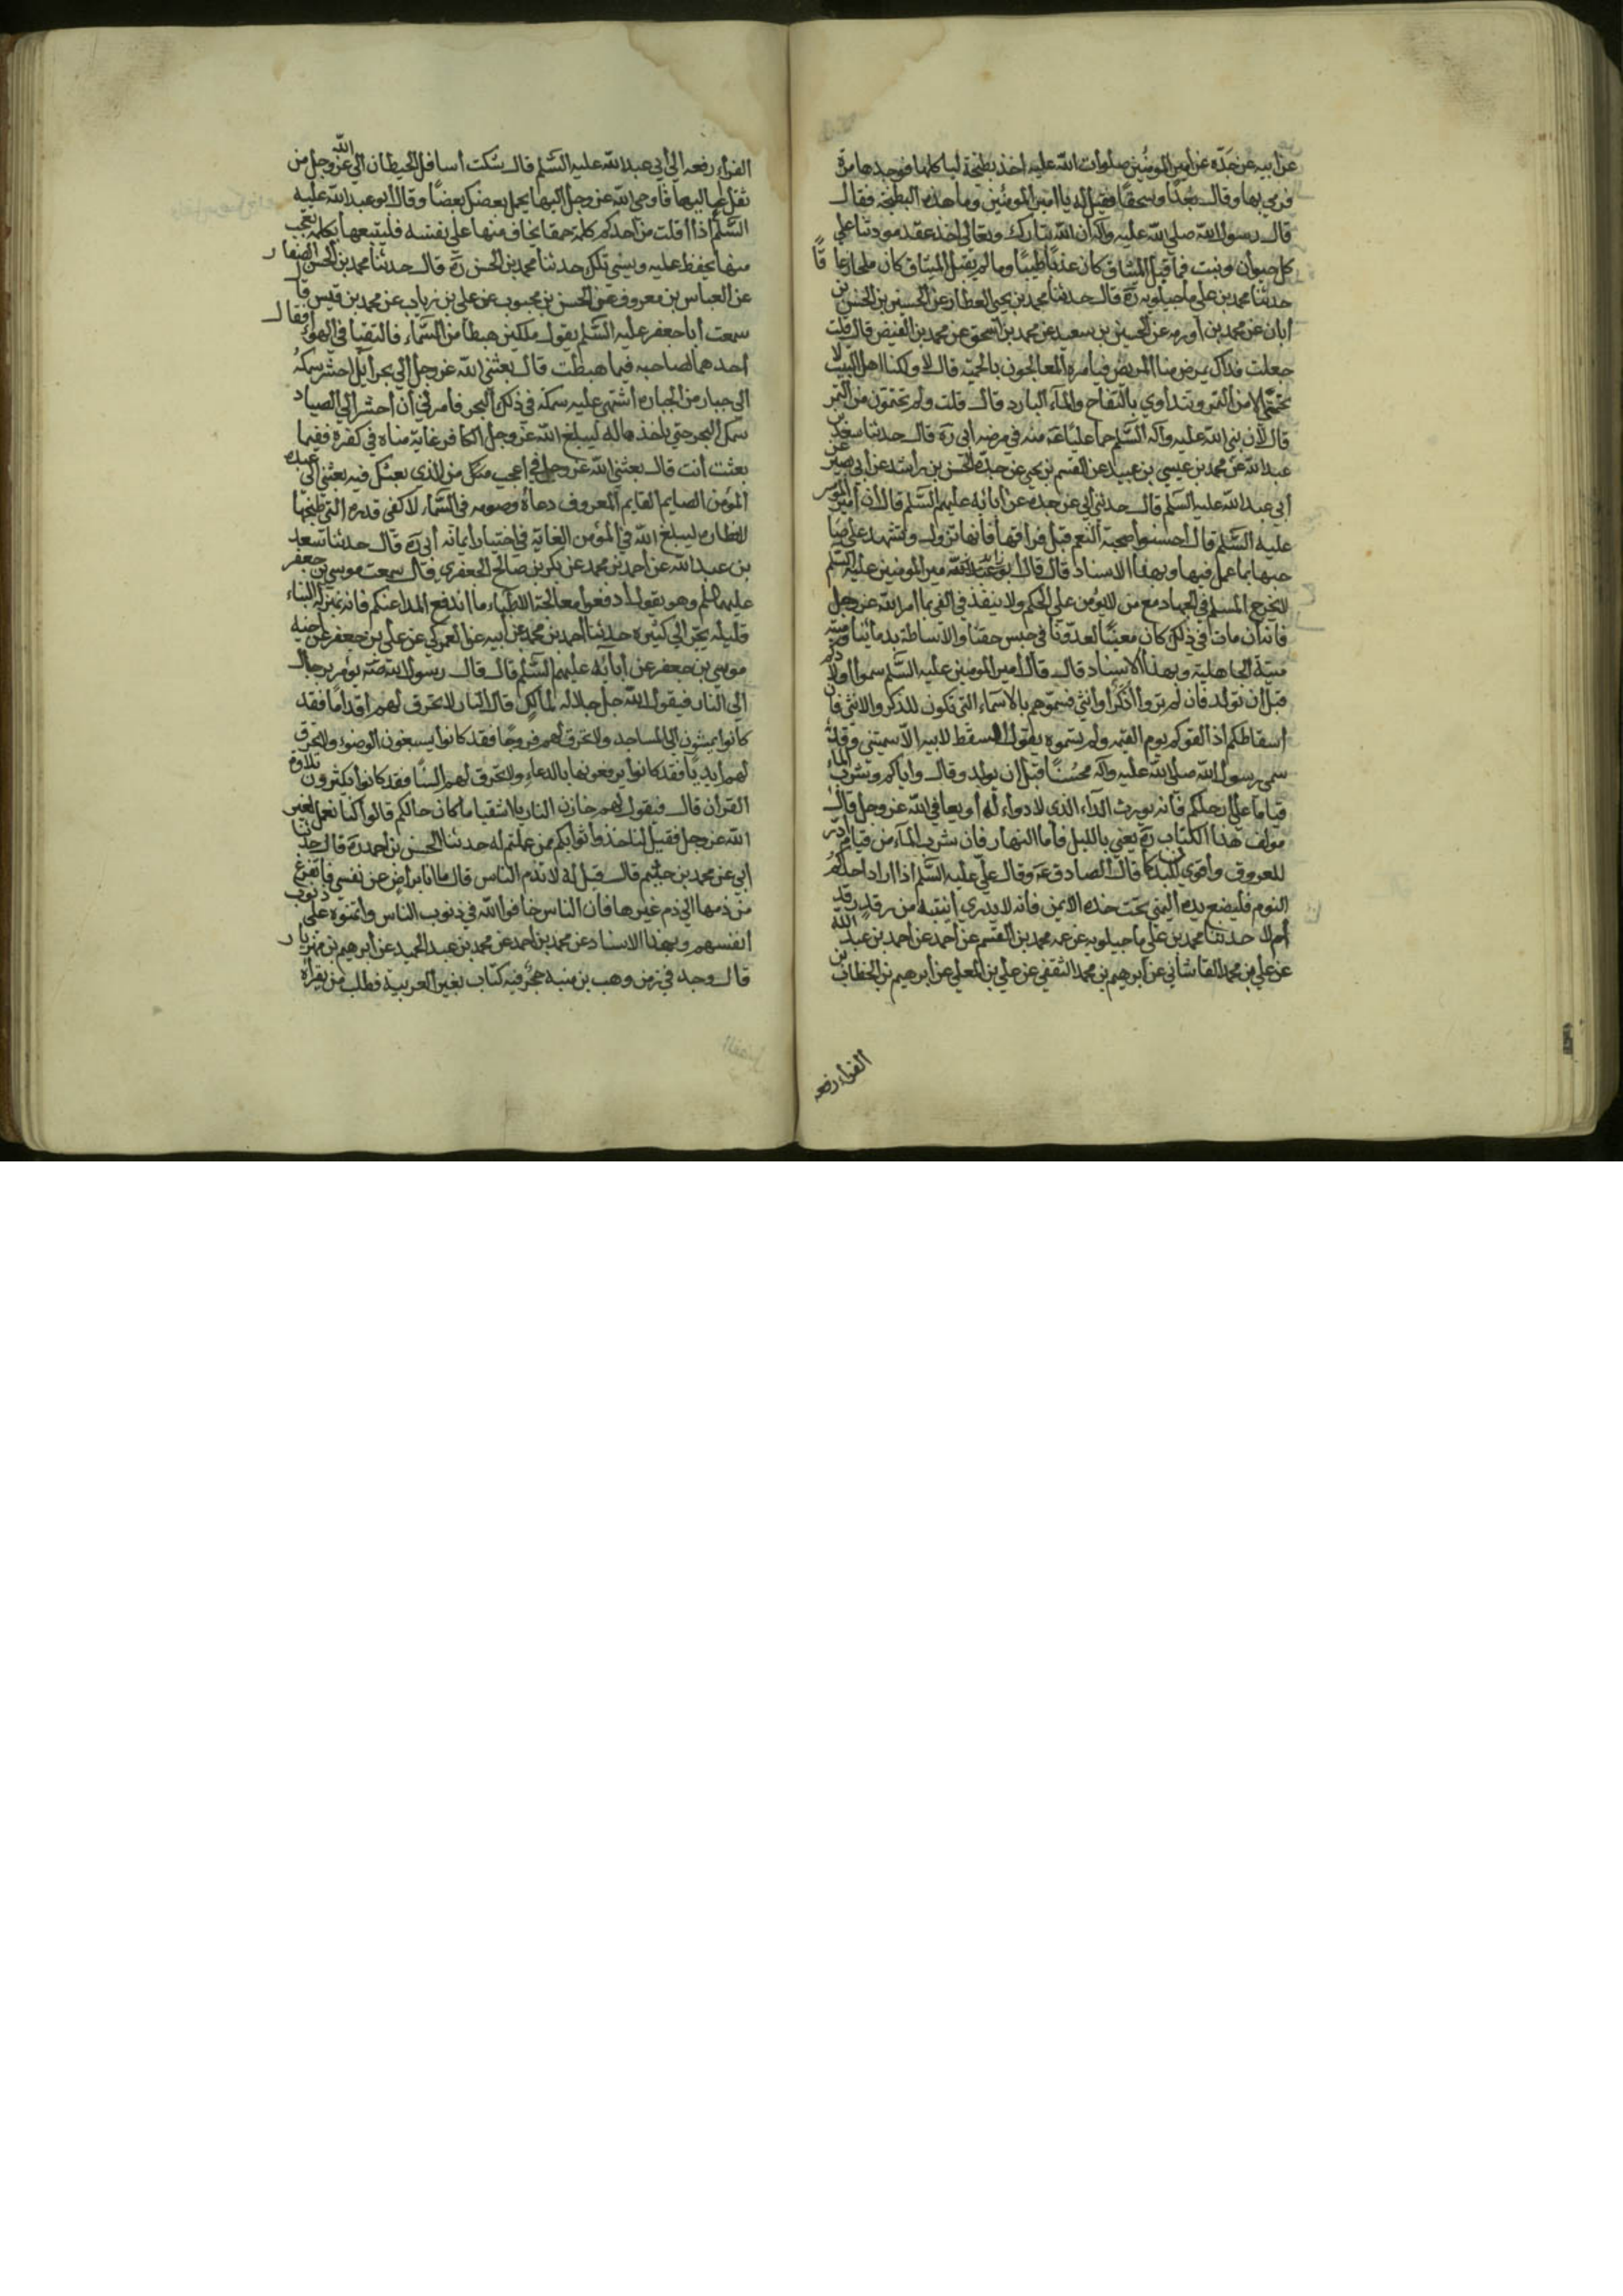 عن ابيه عن جده عن امير المومنين صلوات الله عليه اخذ بطيخة لياكلها فوجدها مرة
فرمي بها وقال بعدًا وسحقًا فقيل له يا امير المومنين وما هذه البطيخه فقال
قال رسول الله صلي الله عليه وآله ان الله تبارك وتعالي اخذ عقد مودتنا علي
كل حيوان ونبت فما قبل الميثاق كان عذبًا طيبًا وما لم يقبل الميثاق كان ملحا زعاقًا
حدثنا محمد بن علي ماجيلويه ره قال حدثنا محمد بن يحيي العطار عن الحسين بن الحسن بن
أبان عن محمد بن أورمه عن الحسين بن سعيد عن محمد بن اسحق عن محمد بن الفيض قال قلت
جعلت فداك يمرض منا المريض فيامره المعالجون بالحمية قال لا ولكنا اهل البيت لا
نحتمي الا من التمر ونتداوي بالتفاح والمآء البارد قال قلت ولم تحتمون من التمر
قال لان نبي الله عليه وآله السّلم حما عليًا عه منه في مرضه أبي ره قال حدثنا سعد بن
عبد الله عن محمد بن عيسي بن عبيد عن القسم بن يحيي عن جده الحسن بن راشد عن أبي بصير عن
أبي عبد الله عليه السّلم قال حدثني أبي عن جده عن ابائه عليهم السّلم قال أن أمير المومنين
عليه السّلم قال احسنوا صحبة النعم قبل فراقها فانها تزول وتشهد علي صا
حبها بما عمل فيها وبهذا الاسناد قال قال امير المومنين عليه السّلم
لا يخرج المسلم في الجهاد مع من لا يؤمن علي الحكم ولا ينفذ في الفي بما امر الله عز وجل
فانه ان مات في ذلك كان معينًا لعدونا في حبس حقنا والاساطة بدمائنا وميتته
ميتة الجاهلية وبهذا الاسناد قال قال أمير المومنين عليه السّلم سموا اولادكم
قبل أن تولد فان لم تدروا أذكر أو أنثي فسموهم بالاسماء التي تكون للذكر والانثي فان
أسقاطكم اذا لقوكم يوم القيمه ولم تسموه يقول السقط لابيه الا سميتني وقد
سمي رسول الله صلي الله عليه وآله محسنًا قبل ان يولد وقال واياكم وشرب الماء
قياما علي ارجلكم فانه يورث الداء الذي لا دواء له أو يعافي الله عز وجل قال
مولف هذا الكتاب ره يعني بالليل فأما النهار فان شرب المآء من قيام أدر
للعروق واقوي للبدن كما قال الصادق عه وقال علي عليه السّلم اذا اراد احدكم
النوم فليضع يده اليمني تحت خده الايمن فانه لا يدري اينتبه من رقدته
أم لا حدثنا محمد بن علي ماجيلويه عن عمه محمد بن ابي القسم عن أحمد عن احمد بن عبد الله
عن علي بن محمد القاشاني عن ابرهيم بن محمد الثقفي عن علي بن المعلي عن ابرهيم بن الخطاب بن
الفراء رفعه
الفراء رفعه الي أبي عبد الله عليه السّلم قال شكت أسافل الحيطان الي الله عز وجل من
ثقل أعاليها فأوحي الله عز وجل اليها يحمل بعضك بعضًا وقال أبو عبد الله عليه
السّلم اذا أفلتت من أحدكم كلمة حمقا يخاف منها علي نفسه فليتبعها بكلمة تعجب
منها يحفظ عليه وينسي تلك حدثنا محمد بن الحسن ره قال حدثنا محمد بن الحسن الصفار
عن العباس بن معروف عن الحسن بن محبوب عن علي بن رياب عن محمد بن قيس قال
سمعت أبا جعفر عليه السّلم يقول ملكين هبطا من السّماء فالتقيا في الهواء فقال
أحدهما لصاحبه فيما هبطت قال بعثني الله عز وجل الي بحر أيل احشر سمكه
الي جبار من الجبابره اشتهي عليه سمكة في ذلك البحر فأمرني أن أحشر الي الصياد
سمك البحر حتي ياخذها له ليبلغ الله عز وجل الكافر غاية مناه في كفره ففيما
بعثت أنت قال بعثني الله عز وجل في اعجب من الذي بعثك فيه بعثني الي عبده
المؤمن الصايم القايم المعروف دعاؤه وصومه في السّماء لاكفي قدره التي طبخها
لافطاره ليبلغ الله في المؤمن الغاية في اختبار ايمانه أبي ره قال حدثنا سعد
بن عبد الله عن أحمد بن محمد عن بكر بن صالح الجعفري قال سمعت موسي بن جعفر
عليهما السلم وهو يقول ادفعوا معالجة الاطباء ما اندفع الداء عنكم فانه بمنزلة البناء
قليله يجر الي كثيره حدثنا أحمد بن محمد عن أبيه عن العمركي عن علي بن جعفر عن أخيه
موسي بن جعفر عن أبائه عليهم السّلم قال قال رسول الله يؤمر برجال
الي النار فيقول الله جل جلاله لمالك قل للنار لا تحرق لهم أقدامًا فقد
كانوا يمشون الي المساجد ولا تحرق لهم وجوهًا فقد كانوا يسبغون الوضوء ولا تحرق
لهم ايديًا فقد كانوا يرفعونها بالدعاء ولا تحرق لهم السنًا فقد كانوا يكثرون تلاوة
القرأن قال فيقول لهم خازن النار يا اشقيا ما كان حالكم قالوا كنا نعمل لغير
الله عز وجل فقيل لنا خذوا ثوابكم ممن عملتم له حدثنا الحسن بن احمد ره قال حدثنا
أبي عن محمد بن قال قيل له لا تذم الناس قال ما انا براض عن نفسي فاتفرغ
من ذمها الي ذم غيرها فان الناس خافوا الله في ذنوب الناس وائتمنوه علي ذنوب
انفسهم وبهذا الاسناد عن محمد بن احمد عن محمد بن عبد الحميد عن ابرهيم بن مهزيار
قال وجد في زمن وهب بن منبه حجر فيه كتاب بغير العربية فطلب من يقرأه